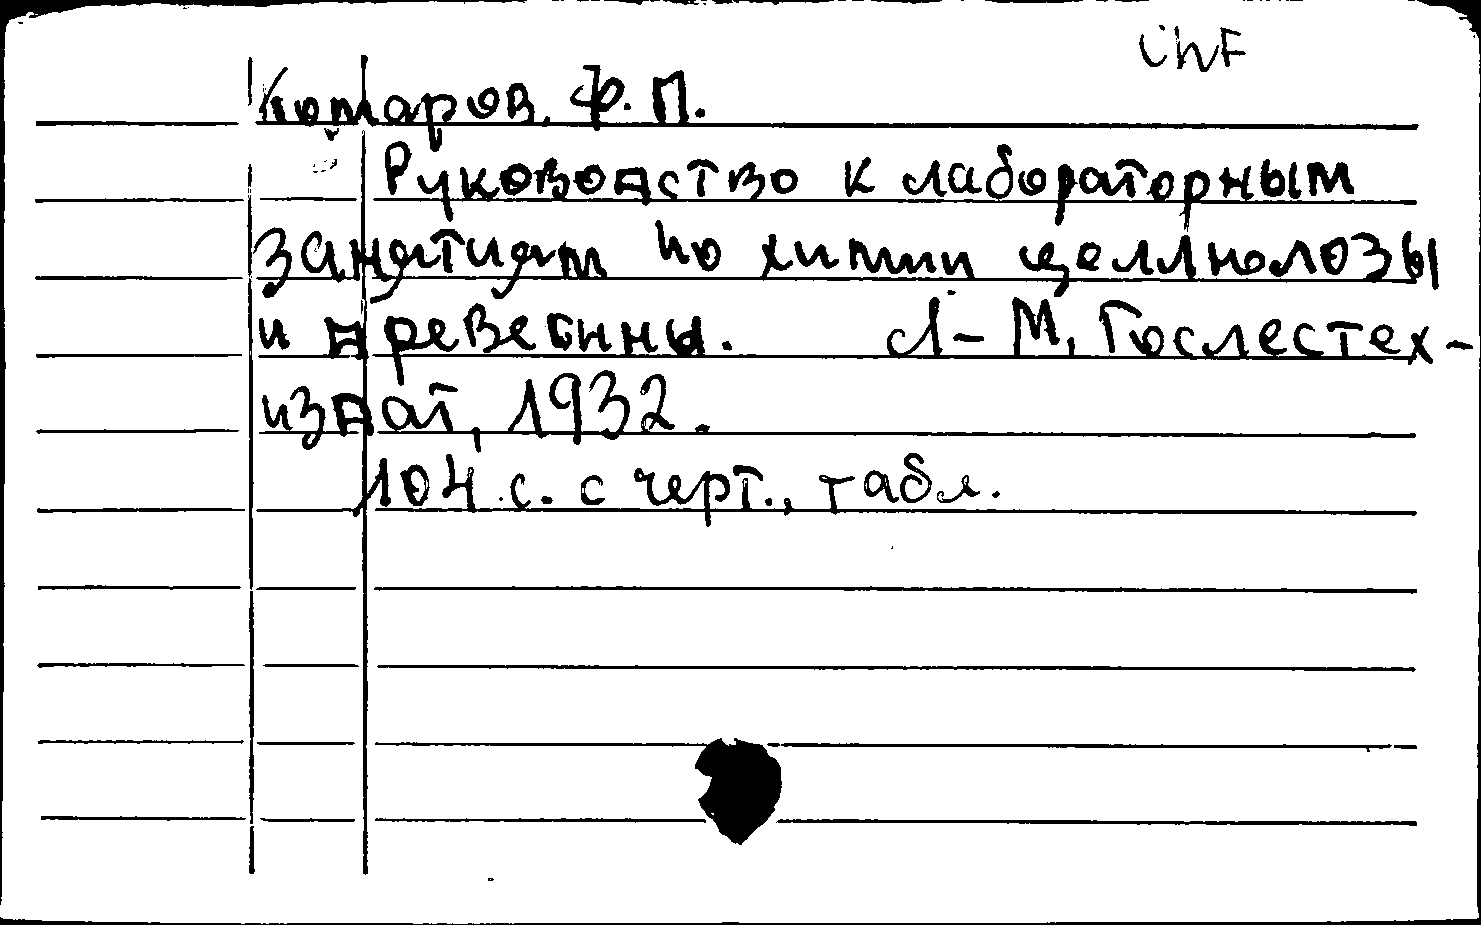 Комаров, Ф. П.
Руководство к лабораторным
занятиям по химии целлюлозы
и древесины. Л-М, Гослестех-
издат, 1932.
104 с. с черт., табл.